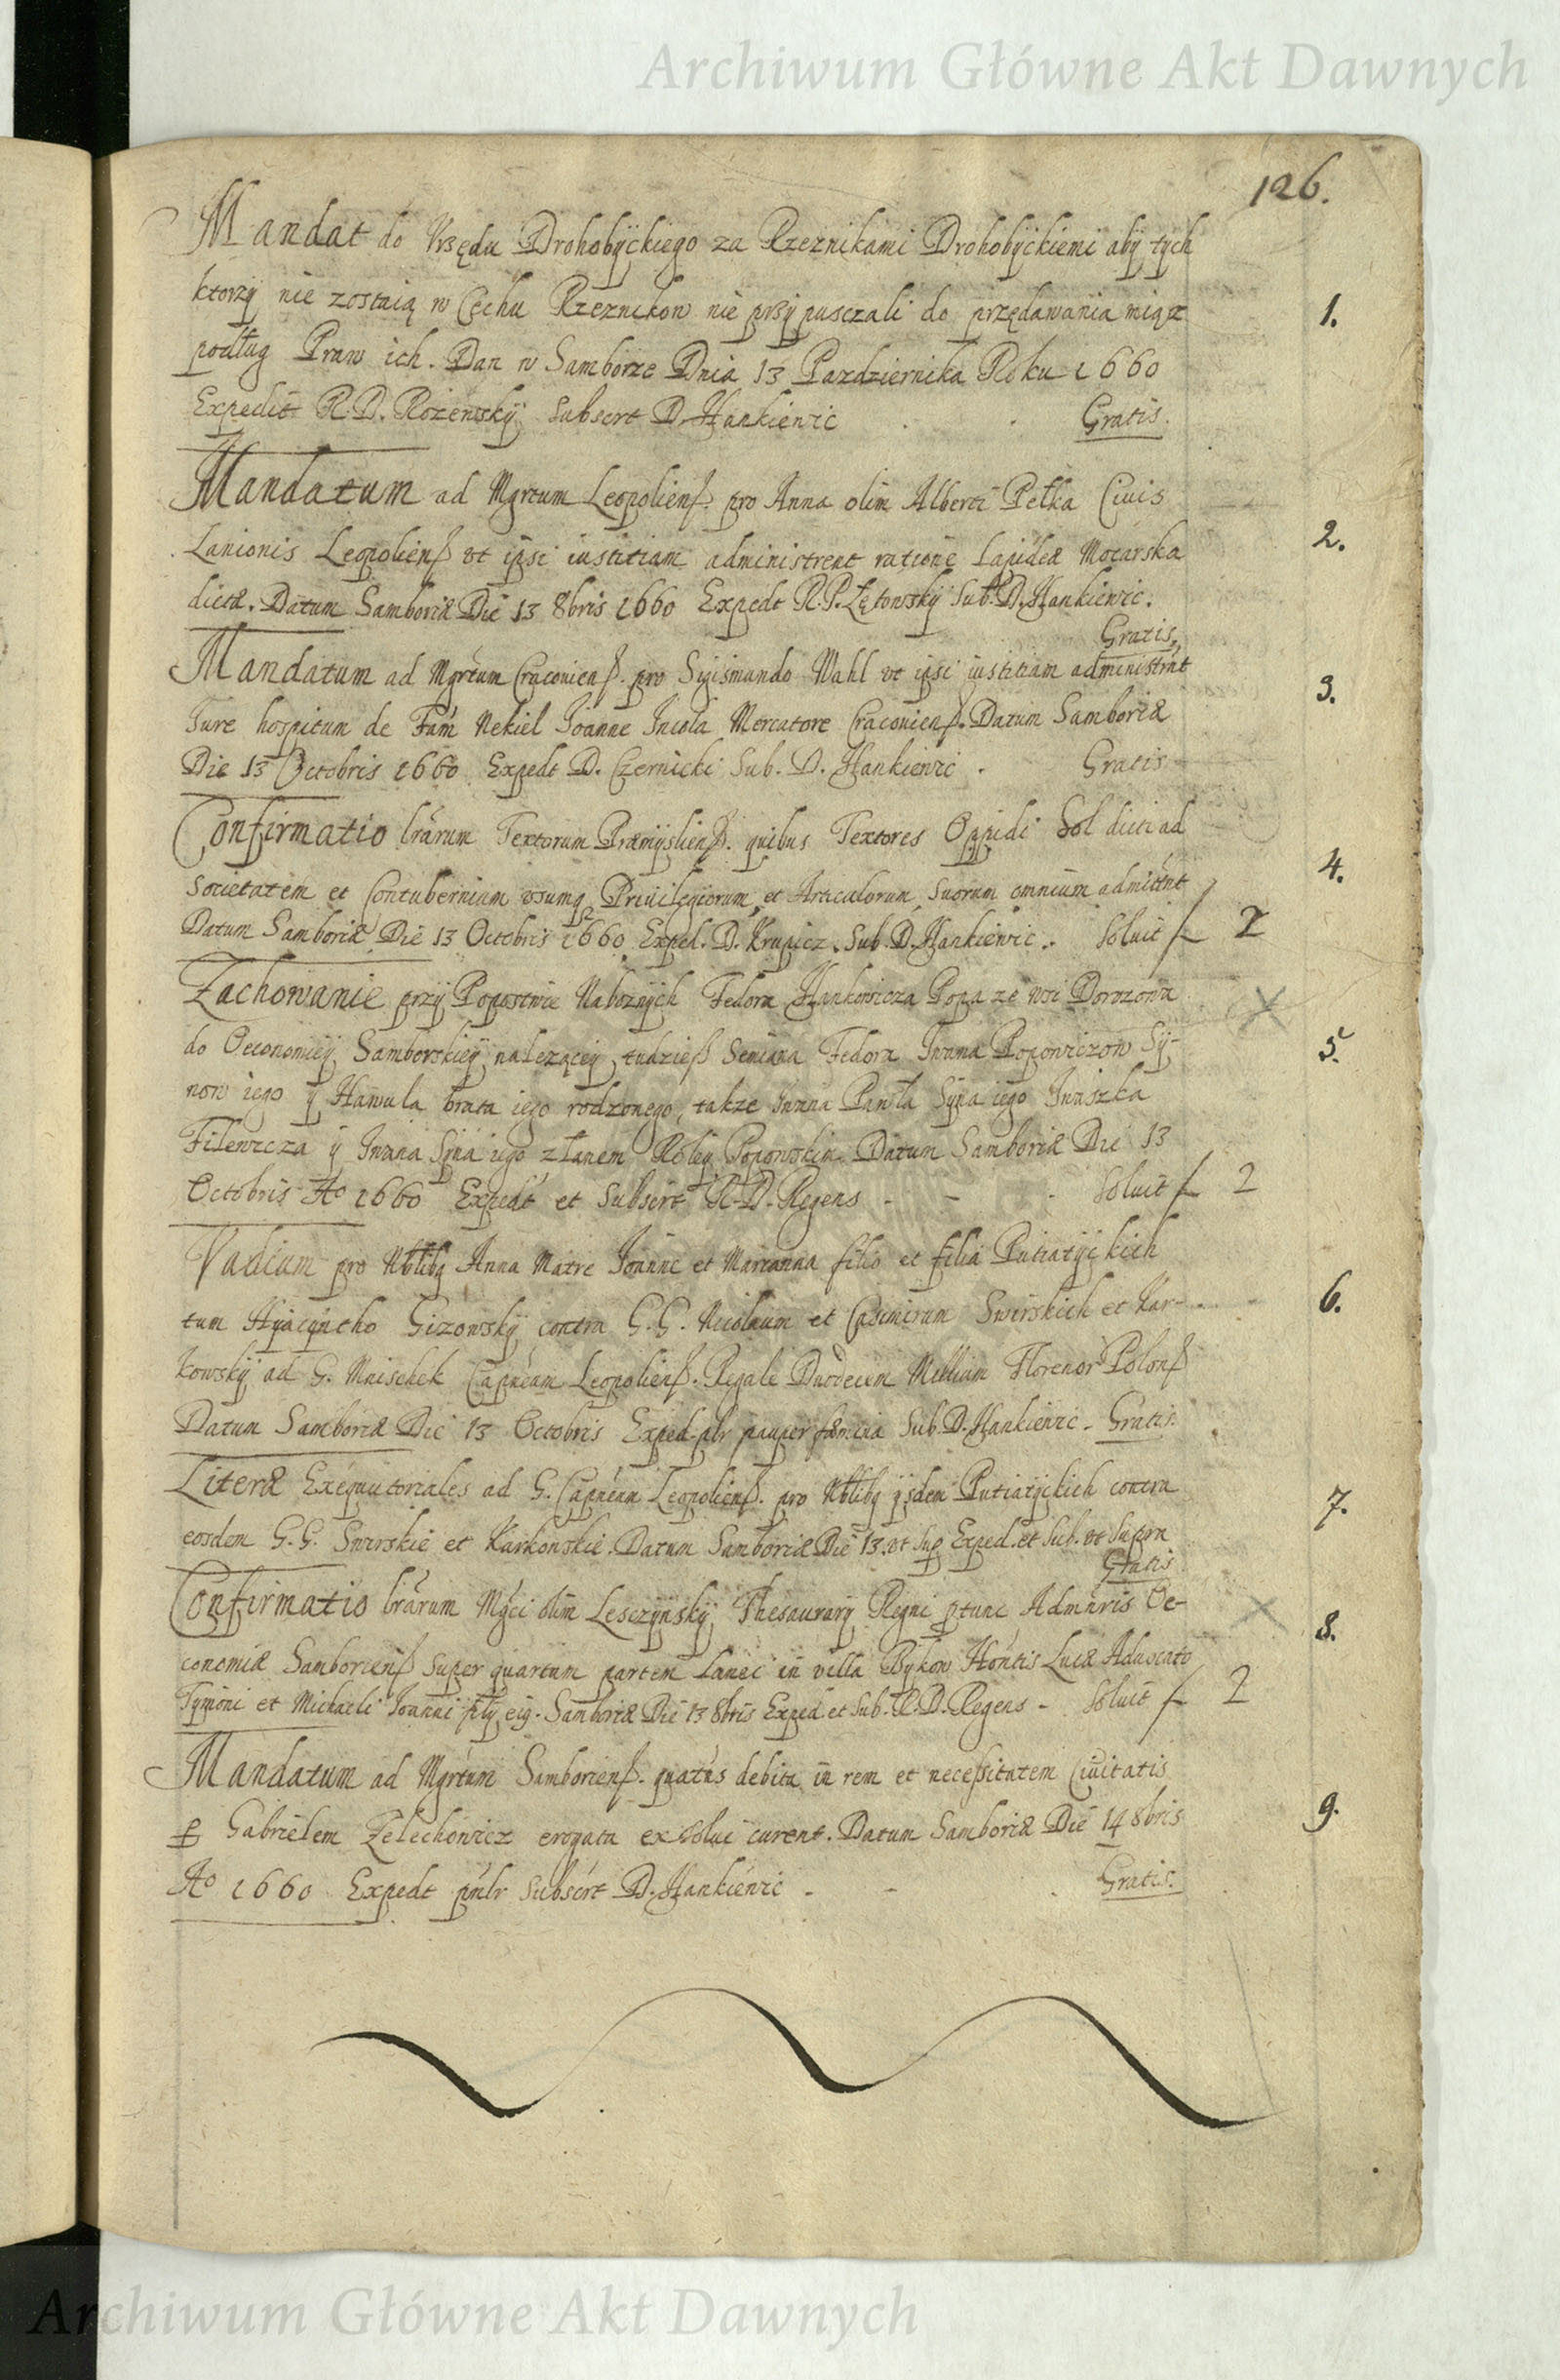 Archiwum Główne Akt Dawnych
126.
Mandat do Vrzędu Drohobyckiego za Rzeznikami Drohobyckiemi aby tych
ktorzy nie zostaią w Cechu Rzeznikow nie przypusczali do przedawania mięz
podług Praw ich. Dan w Samborze Dnia 13 Pazdziernika Roku 1660
Expedit R. D. Rozenwsky Subscrt D. Hankiewic Gratis.
1.
Mandatum ad Mgrtum Leopoliens. pro Anna olim Alberti Pełka Ciuis
Lanionis Leopoliens vt ipsi iustitiam administrent ratione lapideæ Mocarska
dictæ. Datum Samboriæ Die 13 8bris 1660 Expedt R. P. Lętowsky Sub. D. Hankiewic.
Gratis
2.
Mandatum ad Mgrtum Cracouiens. pro Sigismundo Wahl vt ipsi iustitiam administrnt
Iure hospitum de Fam Nekiel Joanne Incola Mercatore Cracouiens. Datum Samboriæ
Die 13 Octobris 1660 Expedt D. Czernicki Sub. D. Hankiewic. Gratis
3.
Confirmatio lrarum Textorum Præmysliens. quibus Textores Oppidi Sol dicti ad
Societatem et Contubernium vsumq Priuilegiorum et Articulorum suorum omnium admittnt
Datum Samboriæ Die 13 Octobris 1660 Exped. D. Krupicz. Sub. D. Hankiewic. Soluit f 2
4.
Zachowanie przy Popostwie Naboznych Fedora Hankowicza Popa ze wsi Dorozowa
do Oeconomiey Samborskiey nalezącey tudziesz Seniana Fedora Iwana Popowiczow Sy-
now iego y Hawula brata iego rodzonego, takze Iwana Pawła Syna iego Iwaszka
Filewicza y Iwana Syna iego z łanem Roley Popowskim Datum Samboriæ Die 13
Octobris Ao 1660 Expedt et Subscrt R. D. Regens - - Soluit f 2
5.
Vadium pro Nbtlibq Anna Matre Joanne et Marianna filio et filia Putiatyckich
tum Hyacyntho Gizowsky contra G. G. Nicolaum et Casimirum Swirskich et Kar-
kowsky ad G. Mnischek Capneum Leopoliens. Regale Duodecim Millium Florenor Polons
Datum Samboriæ Die 13 Octobris Exped. plr pauper fæmina Sub. D. Hankiewic - Gratis.
6.
Literæ Exequutoriales ad G. Capneum Leopoliens. pro Nbtlibq ysdem Putiatyckich contra
eosdem G. G. Swirskie et Karkowskie. Datum Samboriæ Die 13. vt Sup Exped. et Sub. vt Supra
Gratis
7.
Confirmatio lrarum Mgci olim Lesczynsky Thesaurary Regni ptunc Admnris Oe-
conomiæ Samboriens super quartam partem lanei in villa Bykow Hontis Lucæ Aduocato
Tymoni et Michaeli Joanni fily eig. Samboriæ Die 13 8bris Exped et Sub. R. D. Regens - Soluit f 2
8.
Mandatum ad Mgrtum Samboriens. quatus debita in rem et necessitatem Ciuitatis
p Gabrielem Zelechowicz erogata exsolui curent. Datum Samboriæ Die 14 8bris
Ao 1660 Expedt pmlr Subscrt D. Hankiewic - - Gratis.
9.
Archiwum Główne Akt Dawnych